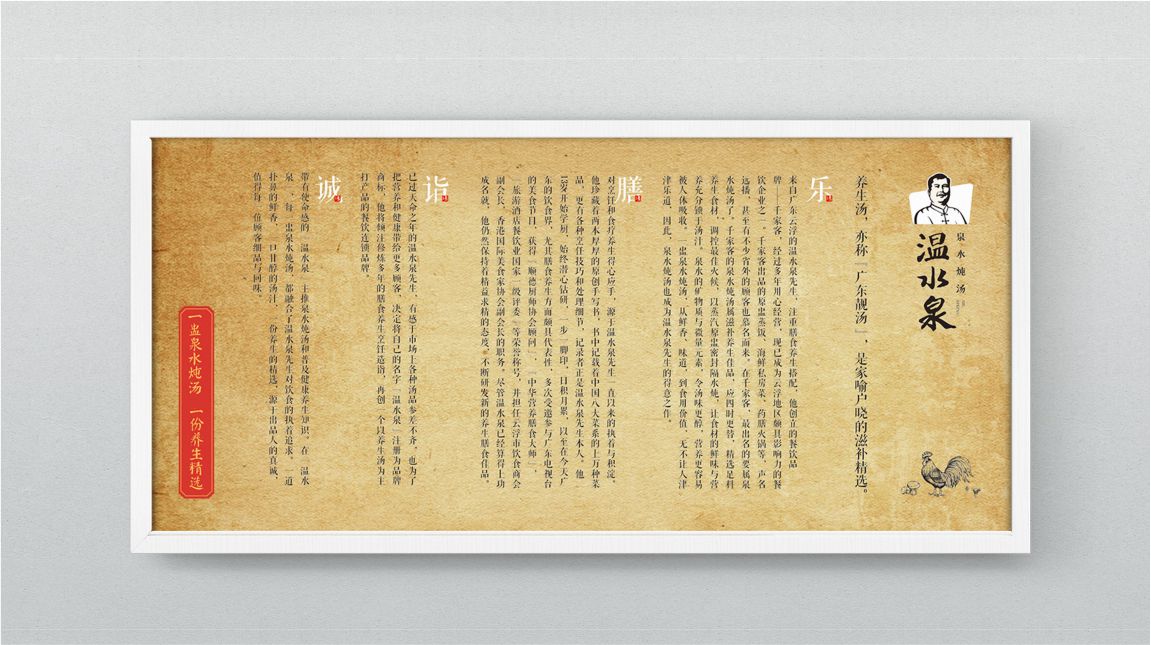 温水泉
泉水炖汤
养生汤，亦称「广东靓汤」，是家喻户晓的滋补精选。
乐
来自广东云浮的温水泉先生，注重膳食养生搭配，他创立的餐饮品
牌——千家客，经过多年用心经营，现已成为云浮地区颇具影响力的餐
饮企业之一。千家客出品的原盅蒸饭、海鲜私房菜、药膳火锅等，声名
远播，甚至有不少省外的顾客也慕名而来。在千家客，最出名的要属泉
水炖汤了。千家客的泉水炖汤属滋补养生佳品，应四时更替，精选足料
养生食材，调控最佳火候，以蒸汽原盅密封隔水炖，让食材的鲜味与营
养充分锁于汤汁。泉水的矿物质与微量元素，令汤味更醇，营养更容易
被人体吸收。一盅泉水炖汤，从鲜香、味道，到食用价值，无不让人津
津乐道，因此，泉水炖汤也成为温水泉先生的得意之作。
膳
对烹饪和食疗养生得心应手，源于温水泉先生一直以来的执着与积淀。
他珍藏着两本厚厚的原创手写书，书中记载着中国八大菜系的上万种菜
品，更有各种烹饪技巧和处理细节，记录者正是温水泉先生本人。他
13岁开始学厨，始终潜心钻研，一步一脚印，日积月累，以至在今天广
东的饮食界，尤其膳食养生方面颇具代表性，多次受邀参与广东电视台
的美食节目，获得「顺德厨师协会顾问」、「中华营养膳食大师」、
「旅游酒店餐饮业国家一级评委」等荣誉称号，并担任云浮市饮食商会
副会长、香港国际美食家协会副会长的职务。尽管温水泉已经算得上功
成名就，他仍然保持着精益求精的态度，不断研发新的养生膳食佳品。
诣
已过天命之年的温水泉先生，有感于市场上各种汤品参差不齐，也为了
把营养和健康带给更多顾客，决定将自己的名字「温水泉」注册为品牌
商标，他将倾注修炼多年的膳食养生烹饪造诣，再创一个以养生汤为主
打产品的餐饮连锁品牌。
诚
带有使命感的「温水泉」主推泉水炖汤和普及健康养生知识，在「温水
泉」，每一盅泉水炖汤，都融合了温水泉先生对饮食的执着追求。一道
扑鼻的鲜香，一口甘醇的汤汁，一份养生的精选，源于出品人的真诚，
值得每一位顾客细品与回味。
一盅泉水炖汤 一份养生精选